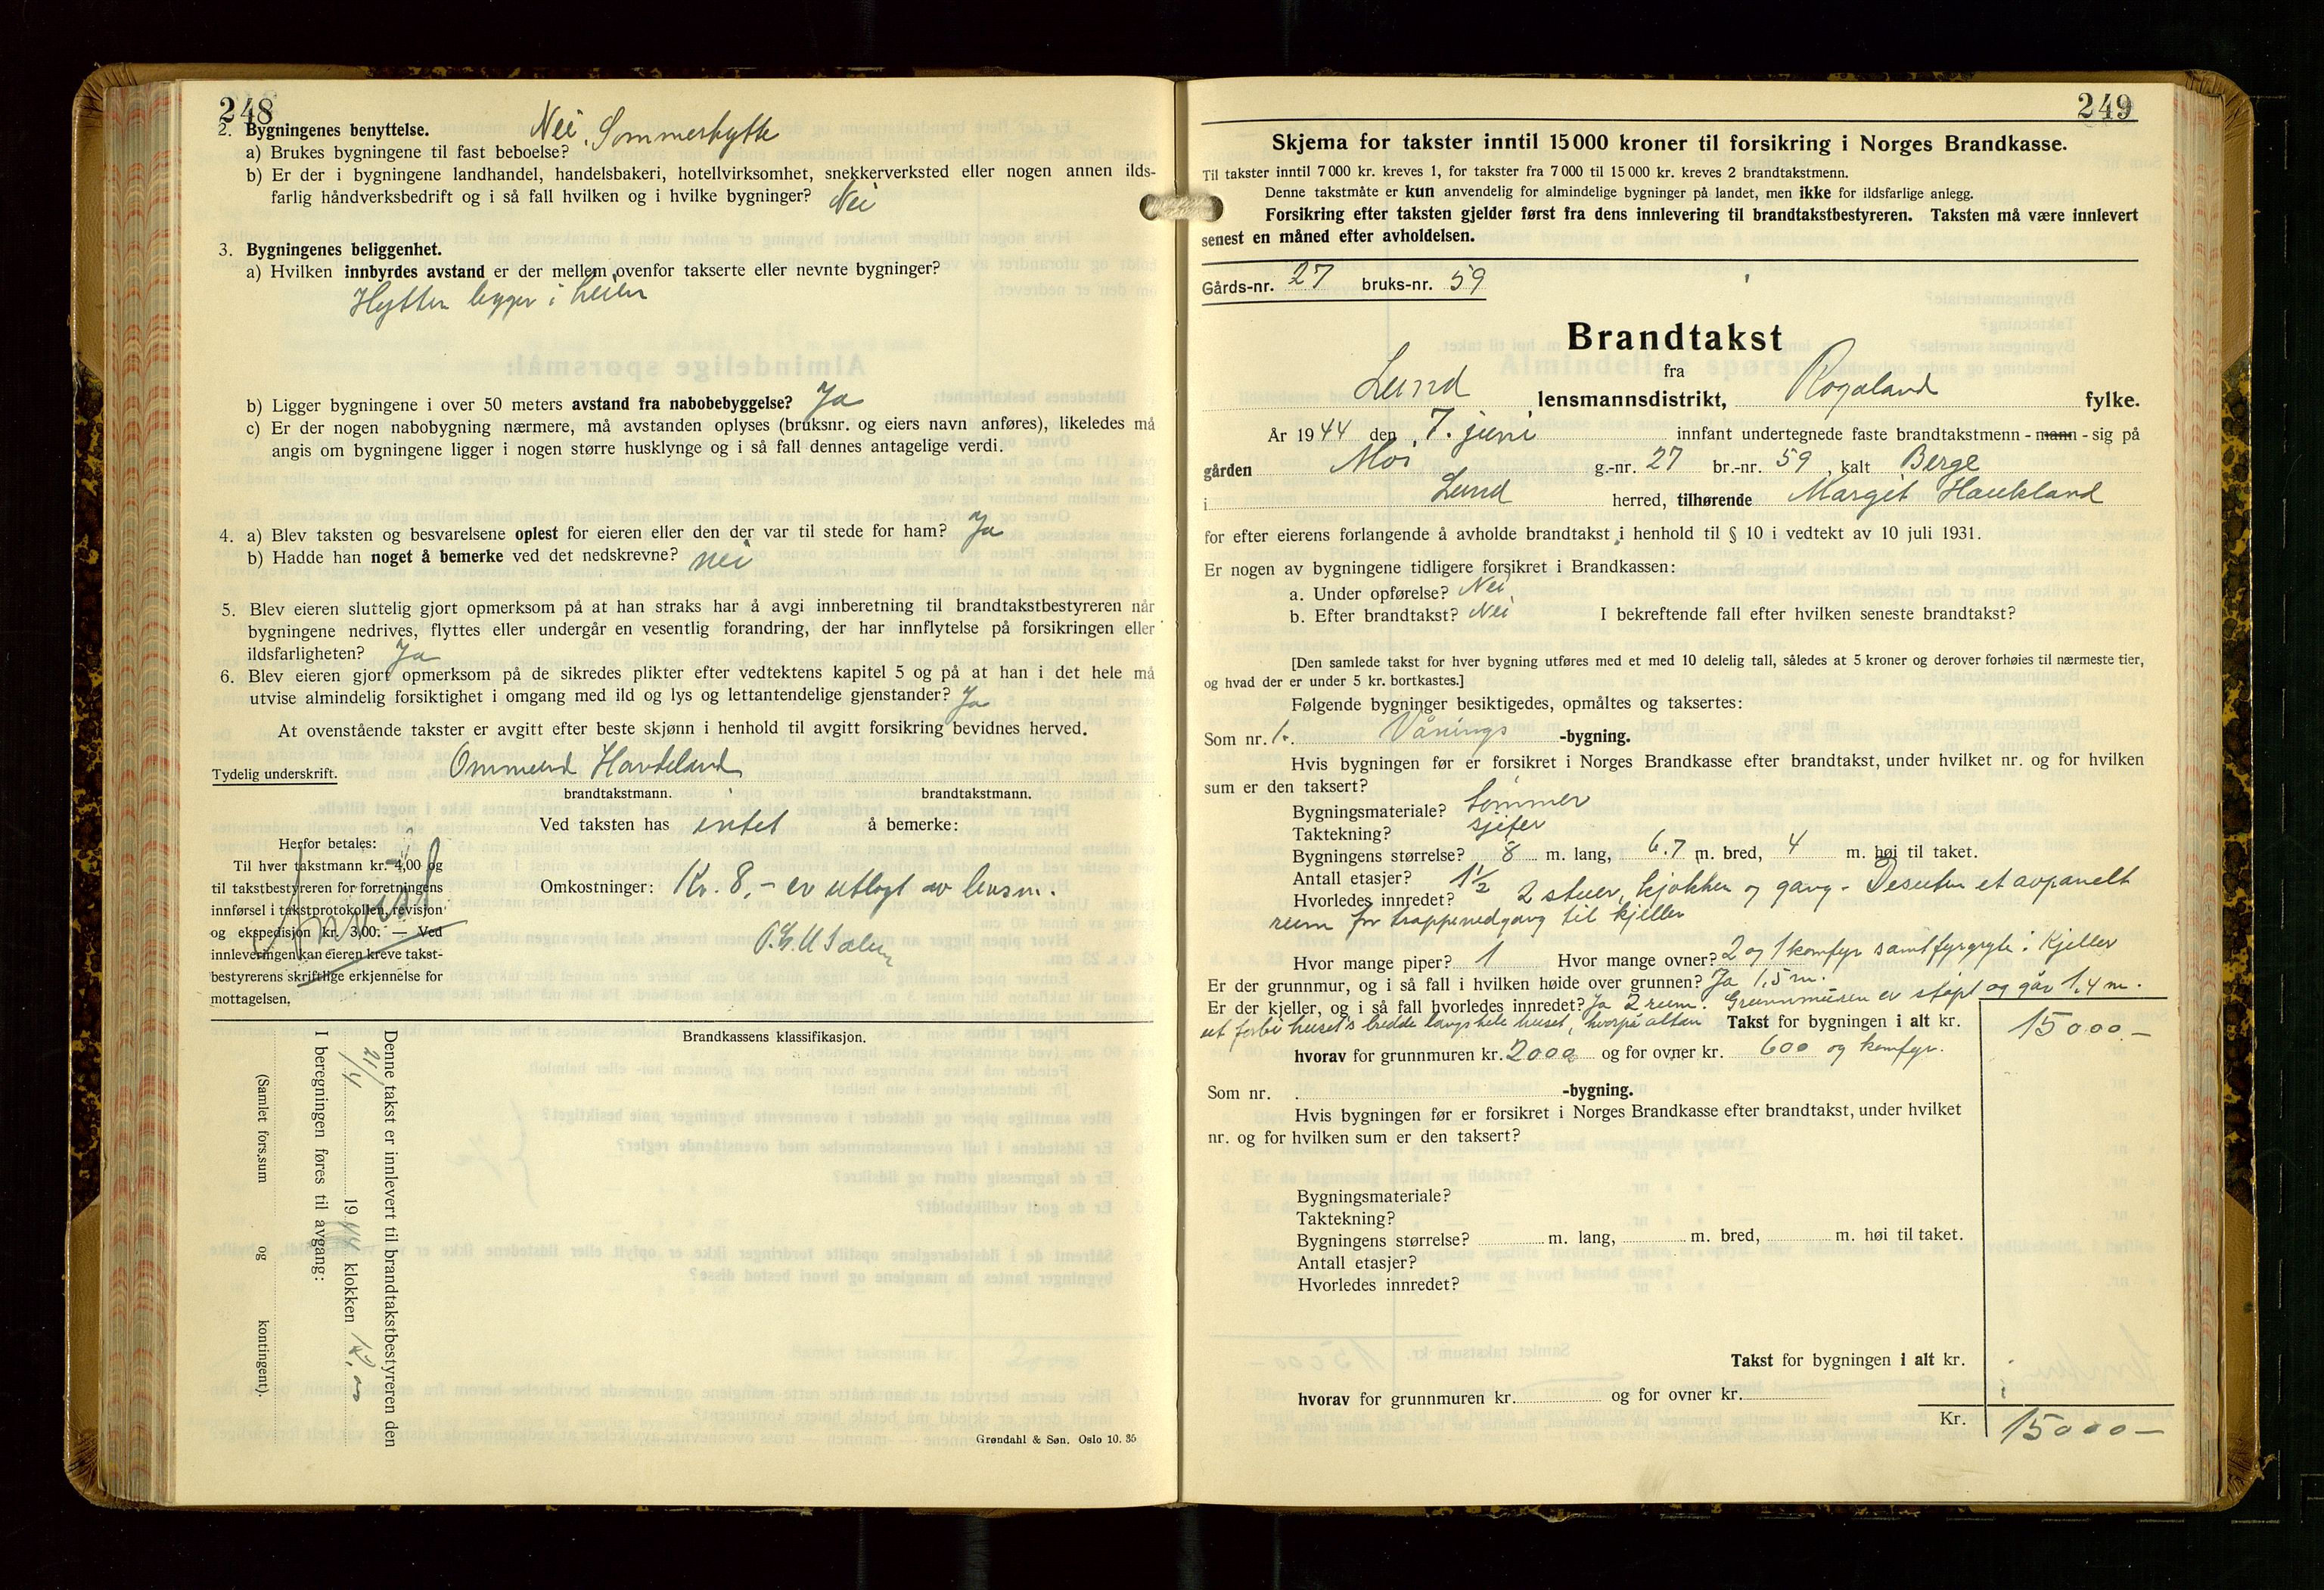 248
2. Bygningenes benyttelse.
a) Brukes bygningene til fast beboelse? Nei. Sommerhytte
b) Er der i bygningene landhandel, handelsbakeri, hotellvirksomhet, snekkerverksted eller nogen annen ilds-
farlig håndverksbedrift og i så fall hvilken og i hvilke bygninger? Nei
3. Bygningenes beliggenhet.
a) Hvilken innbyrdes avstand er der mellem ovenfor takserte eller nevnte bygninger?
Hytten ligger i heien
b) Ligger bygningene i over 50 meters avstand fra nabobebyggelse? Ja
c) Er der nogen nabobygning nærmere, må avstanden oplyses (bruksnr. og eiers navn anføres), likeledes må
angis om bygningene ligger i nogen større husklynge og i så fall dennes antagelige verdi.
4. a) Blev taksten og besvarelsene oplest for eieren eller den der var til stede for ham? Ja
b) Hadde han noget å bemerke ved det nedskrevne? nei
5. Blev eieren sluttelig gjort opmerksom på at han straks har å avgi innberetning til brandtakstbestyreren når
bygningene nedrives, flyttes eller undergår en vesentlig forandring, der har innflytelse på forsikringen eller
ildsfarligheten? Ja
6. Blev eieren gjort opmerksom på de sikredes plikter efter vedtektens kapitel 5 og på at han i det hele må
utvise almindelig forsiktighet i omgang med ild og lys og lettantendelige gjenstander? Ja
At ovenstående takster er avgitt efter beste skjønn i henhold til avgitt forsikring bevidnes herved.
Tydelig underskrift. Ommund Haudeland
brandtakstmann. brandtakstmann.
Ved taksten has intet å bemerke:
Herfor betales:
Til hver takstmann kr. 4,00 og
til takstbestyreren for forretningens
innførsel i takstprotokollen, revisjon
og ekspedisjon kr. 3,00. — Ved
innleveringen kan eieren kreve takst-
bestyrerens skriftlige erkjennelse for
mottagelsen.
Omkostninger: Kr. 8,- er utlagt av lensm.
Brandkassens klassifikasjon.
Denne takst er innlevert til brandtakstbestyreren den
21/4 1944 klokken
I beregningen føres til avgang:
(Samlet fors.sum og kontingent).
Grøndahl & Søn. Oslo 10. 35
249
Skjema for takster inntil 15 000 kroner til forsikring i Norges Brandkasse.
Til takster inntil 7 000 kr. kreves 1, for takster fra 7 000 til 15 000 kr. kreves 2 brandtakstmenn.
Denne takstmåte er kun anvendelig for almindelige bygninger på landet, men ikke for ildsfarlige anlegg.
Forsikring efter taksten gjelder først fra dens innlevering til brandtakstbestyreren. Taksten må være innlevert
senest en måned efter avholdelsen.
Gårds-nr. 27 bruks-nr. 59
Brandtakst
fra
Lund lensmannsdistrikt, Rogaland fylke.
År 1944 den 7. juni innfant undertegnede faste brandtakstmenn - mann - sig på
gården Moi g.-nr. 27 br.-nr. 59, kalt Berge
i Lund herred, tilhørende Margit Haukland
for efter eierens forlangende å avholde brandtakst i henhold til § 10 i vedtekt av 10 juli 1931.
Er nogen av bygningene tidligere forsikret i Brandkassen:
a. Under opførelse? Nei
b. Efter brandtakst? Nei I bekreftende fall efter hvilken seneste brandtakst?
[Den samlede takst for hver bygning utføres med et med 10 delelig tall, således at 5 kroner og derover forhøies til nærmeste tier,
og hvad der er under 5 kr. bortkastes.]
Følgende bygninger besiktigedes, opmåltes og taksertes:
Som nr. 1. Vånings -bygning.
Hvis bygningen før er forsikret i Norges Brandkasse efter brandtakst, under hvilket nr. og for hvilken
sum er den taksert?
Bygningsmateriale? tømmer
Taktekning? sjifer
Bygningens størrelse? 8 m. lang, 6.7 m. bred, 4 m. høi til taket.
Antall etasjer? 1½
Hvorledes innredet? 2 stuer, kjøkken og gang - Desuten et avpanelt
rum for trappenedgang til kjeller
Hvor mange piper? 1 Hvor mange ovner? 2 og 1 komfyr samt fyrgryte i kjeller
Er der grunnmur, og i så fall i hvilken høide over grunnen? Ja 1,5 m.
Er der kjeller, og i så fall hvorledes innredet? Ja 2 rum. Grunnmuren er støpt og går 1,4 m.
ut forbi huset's bredde langs hele huset, hvorpå altan Takst for bygningen i alt kr. 15000.-
hvorav for grunnmuren kr. 2000 og for ovner kr. 600 og komfyr.
Som nr. -bygning.
Hvis bygningen før er forsikret i Norges Brandkasse efter brandtakst, under hvilket
nr. og for hvilken sum er den taksert?
Bygningsmateriale?
Taktekning?
Bygningens størrelse? m. lang, m. bred, m. høi til taket.
Antall etasjer?
Hvorledes innredet?
Takst for bygningen i alt kr.
hvorav for grunnmuren kr. og for ovner kr.
Kr. 15000-